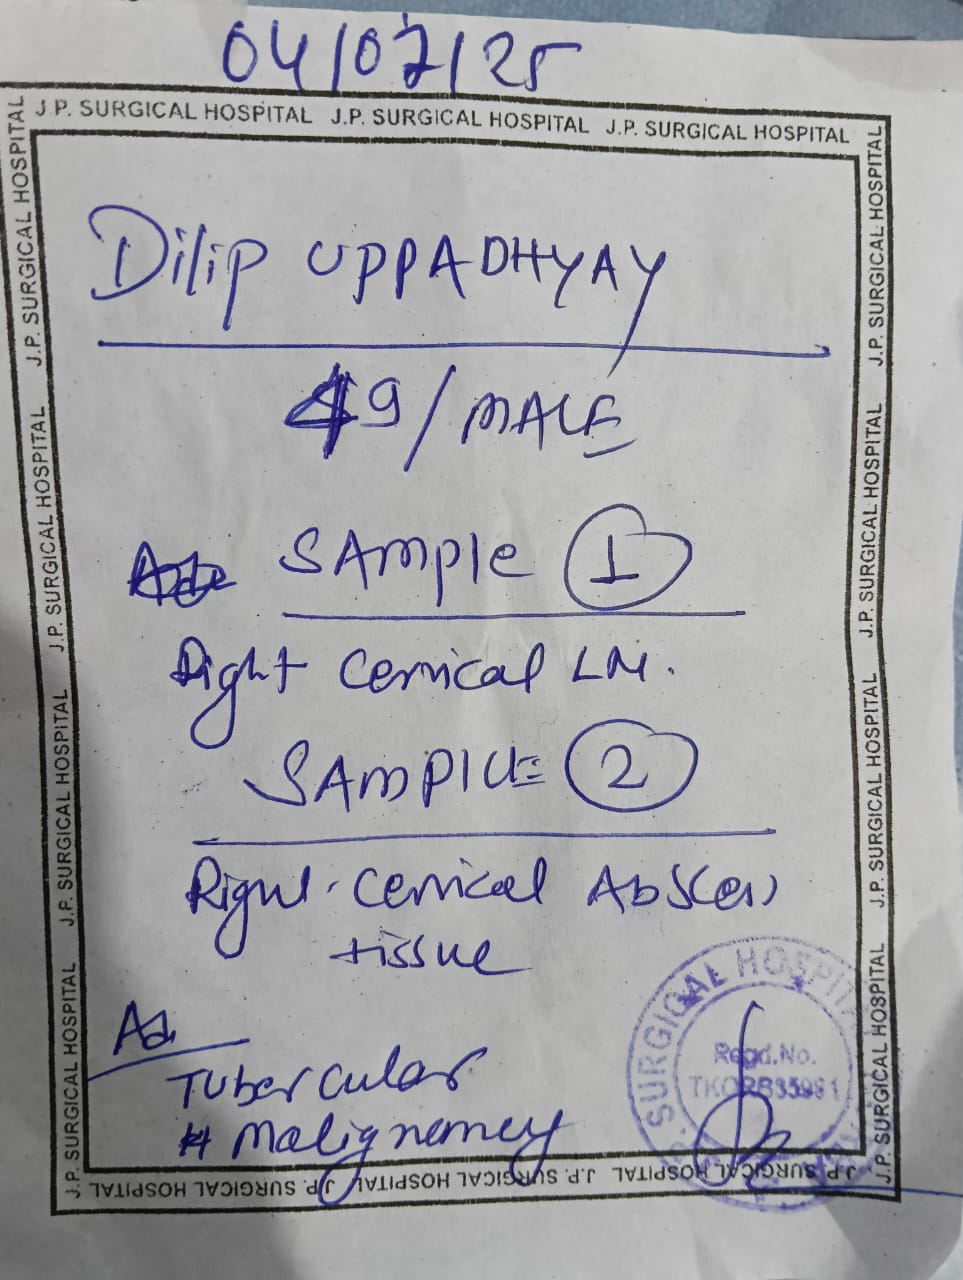 04/07/25
J.P. SURGICAL HOSPITAL J.P. SURGICAL HOSPITAL J.P. SURGICAL HOSPITAL
Dilip UPPADHYAY
49/MALE
SAMPle 1
Right Cervical LN.
SAMPLE 2
Right Cervical Abscess
tissue
Ad
Tubercular
Malignemcy
SURGICAL HOSPITAL
Regd.No.
J.P. SURGICAL HOSPITAL J.P. SURGICAL HOSPITAL J.P. SURGICAL HOSPITAL
J.P. SURGICAL HOSPITAL J.P. SURGICAL HOSPITAL J.P. SURGICAL HOSPITAL J.P. SURGICAL HOSPITAL
J.P. SURGICAL HOSPITAL J.P. SURGICAL HOSPITAL J.P. SURGICAL HOSPITAL J.P. SURGICAL HOSPITAL